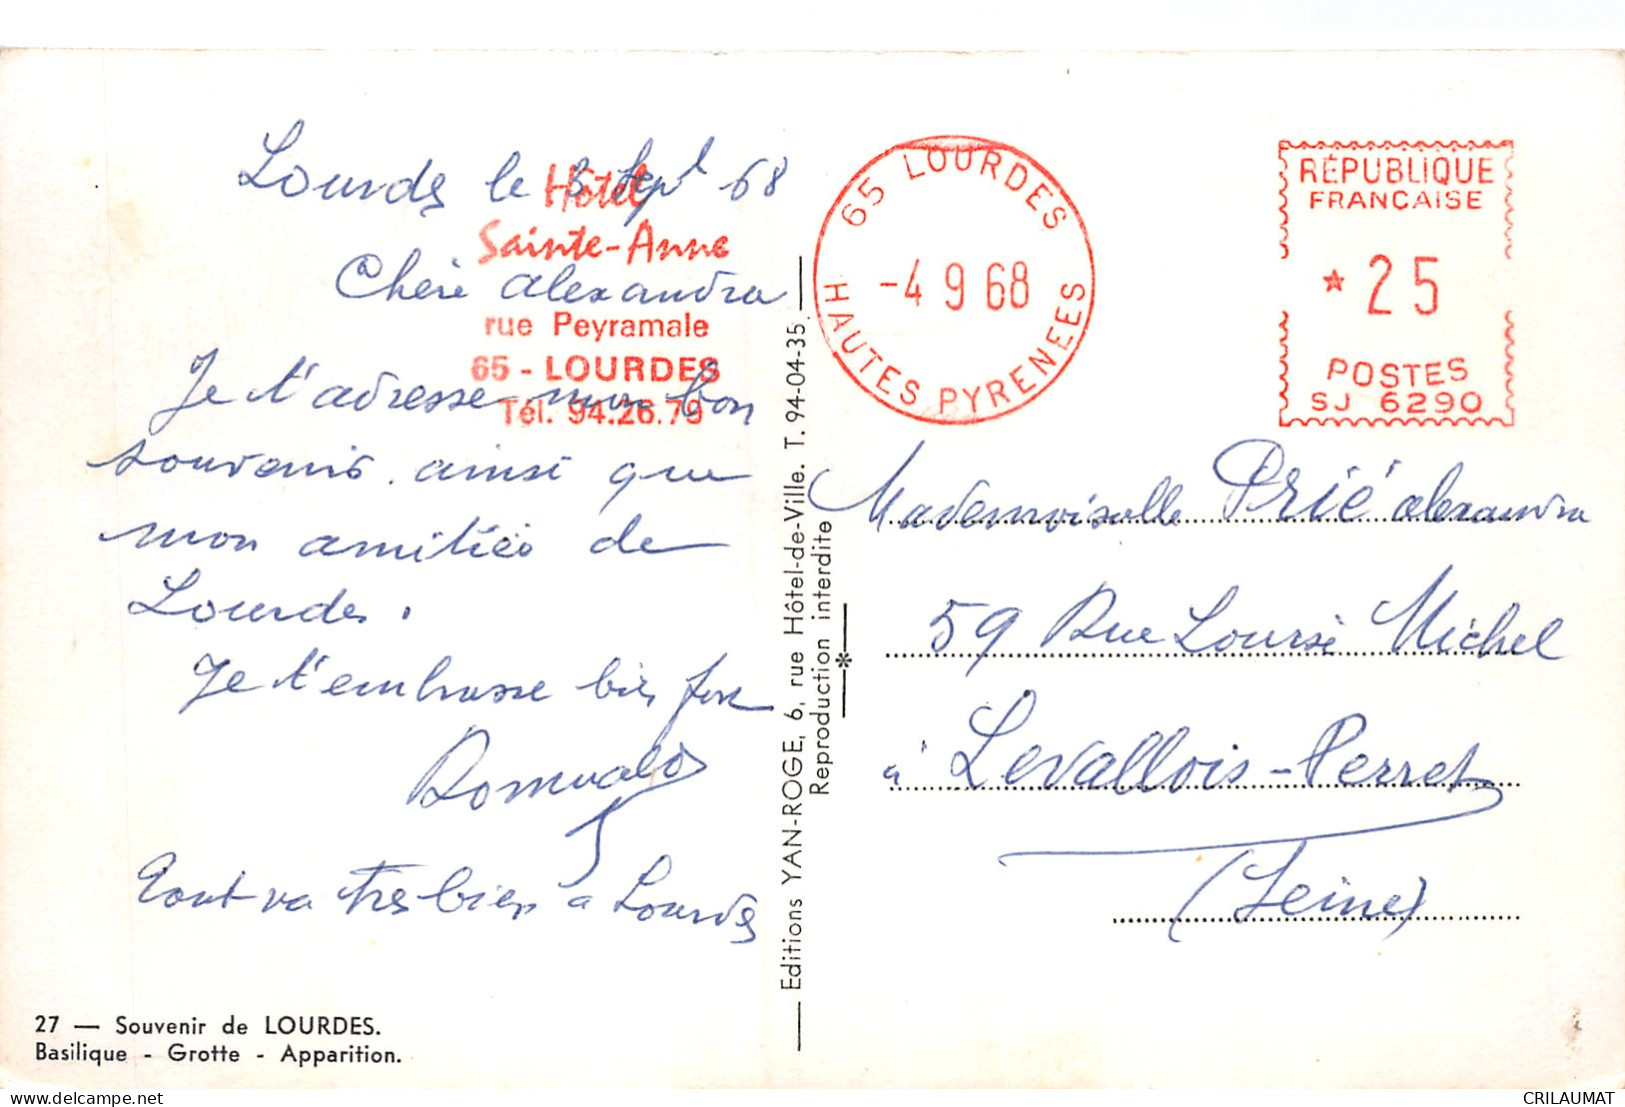 Lourdes le 3 Sept 68
Hôtel
Sainte-Anne
Chère alexandra
rue Peyramale
65 - LOURDES
Tél. 94.26.79
Je t'adresse mon bon
souvenir ainsi que
mon amitiés de
Lourdes.
Je t'embrasse bien fort
Romuald
Tout va très bien a Lourdes
27 — Souvenir de LOURDES.
Basilique - Grotte - Apparition.
Editions YAN-ROGE, 6, rue Hôtel-de-Ville. T. 94-04-35
Reproduction interdite
65 LOURDES
-4 9 68
HAUTES PYRENEES
RÉPUBLIQUE
FRANCAISE
* 25
POSTES
SJ 6290
Mademoiselle Prié alexandra
59 Rue Lourse Michel
à Levallois-Perret
(Seine)
CRILAUMAT